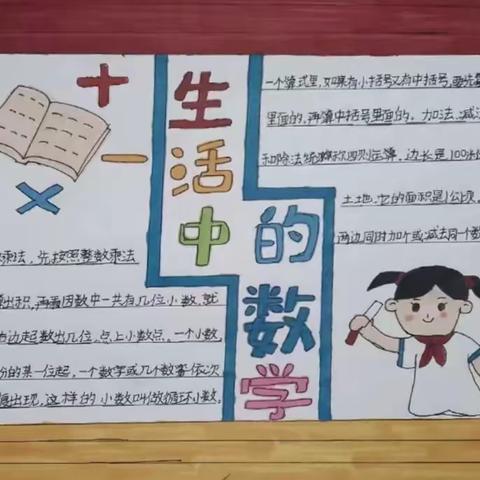 生活中
的数学
一个算式里,如果有小括号又有中括号,要先算
里面的,再算中括号里面的,加法、减法
和除法统称四则运算,边长是100米
土地,它的面积是1公顷。
两边同时加个或减去同一个数
乘法,先按照整数乘法
出积,再看因数中一共有几位小数,就
右边起数出几位,点上小数点。一个小数,
份的某一位起,一个数字或几个数字依次
出现,这样的小数叫做循环小数。